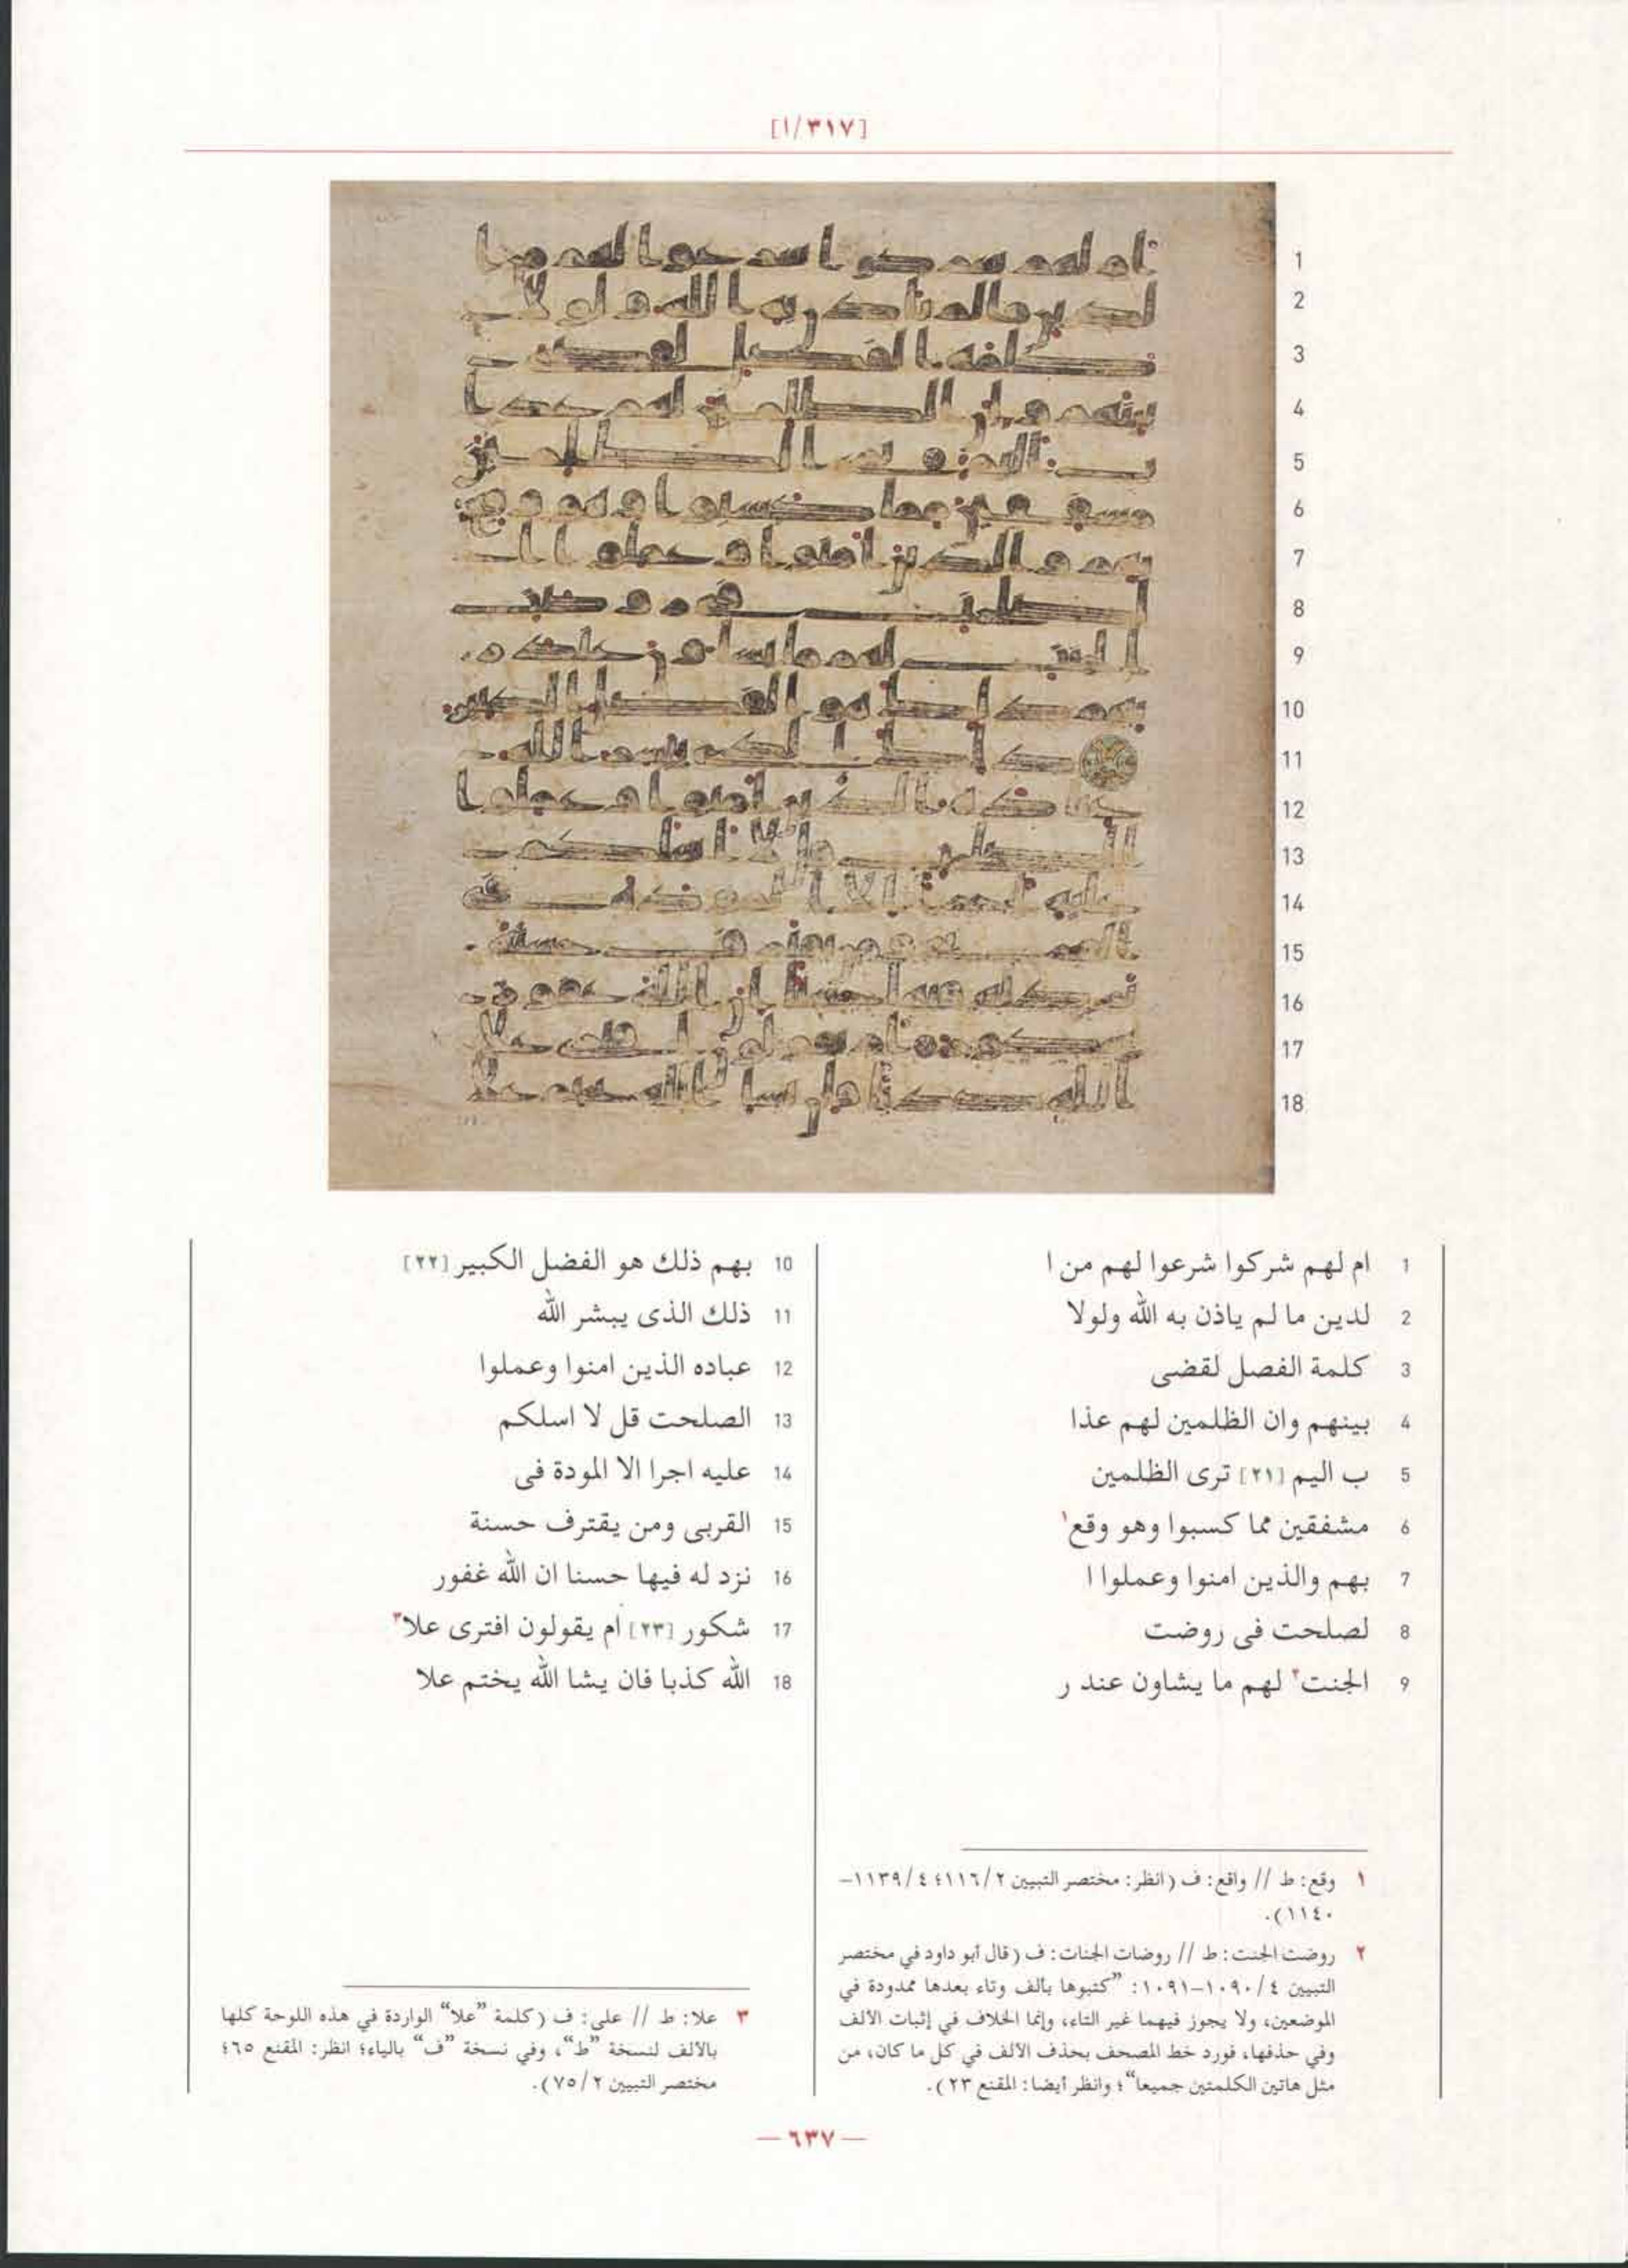 [٣١٧/ا]
1 ام لهم شركوا شرعوا لهم من ا
2 لدين ما لم ياذن به الله ولولا
3 كلمة الفصل لقضى
4 بينهم وان الظلمين لهم عذا
5 ب اليم [٢١] ترى الظلمين
6 مشفقين مما كسبوا وهو وقع١
7 بهم والذين امنوا وعملوا ا
8 لصلحت فى روضت
9 الجنت٢ لهم ما يشاون عند ر
10 بهم ذلك هو الفضل الكبير [٢٢]
11 ذلك الذى يبشر الله
12 عباده الذين امنوا وعملوا
13 الصلحت قل لا اسلكم
14 عليه اجرا الا المودة فى
15 القربى ومن يقترف حسنة
16 نزد له فيها حسنا ان الله غفور
17 شكور [٢٣] ام يقولون افترى علا٣
18 الله كذبا فان يشا الله يختم علا
١ وقع: ط // واقع: ف (انظر: مختصر التبيين ٢/١١٦؛ ٤/١١٣٩-
١١٤٠).
٢ روضت الجنت: ط // روضات الجنات: ف (قال أبو داود في مختصر
التبيين ٤/١٠٩٠-١٠٩١: ”كتبوها بألف وتاء بعدها ممدودة في
الموضعين، ولا يجوز فيهما غير التاء، وإنما الخلاف في إثبات الألف
وفي حذفها، فورد خط المصحف بحذف الألف في كل ما كان، من
مثل هاتين الكلمتين جميعا“؛ وانظر أيضا: المقنع ٢٣).
٣ علا: ط // على: ف (كلمة ”علا“ الواردة في هذه اللوحة كلها
بالألف لنسخة ”ط“، وفي نسخة ”ف“ بالياء؛ انظر: المقنع ٦٥؛
مختصر التبيين ٢/٧٥).
— ٦٣٧ —